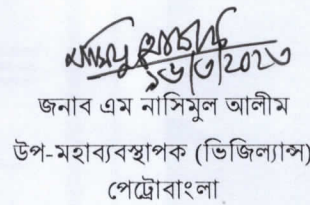 ১৬/৩/2023
জনাব এম নাসিমুল আলীম
উপ-মহাব্যবস্থাপক (ভিজিল্যান্স)
পেট্রোবাংলা